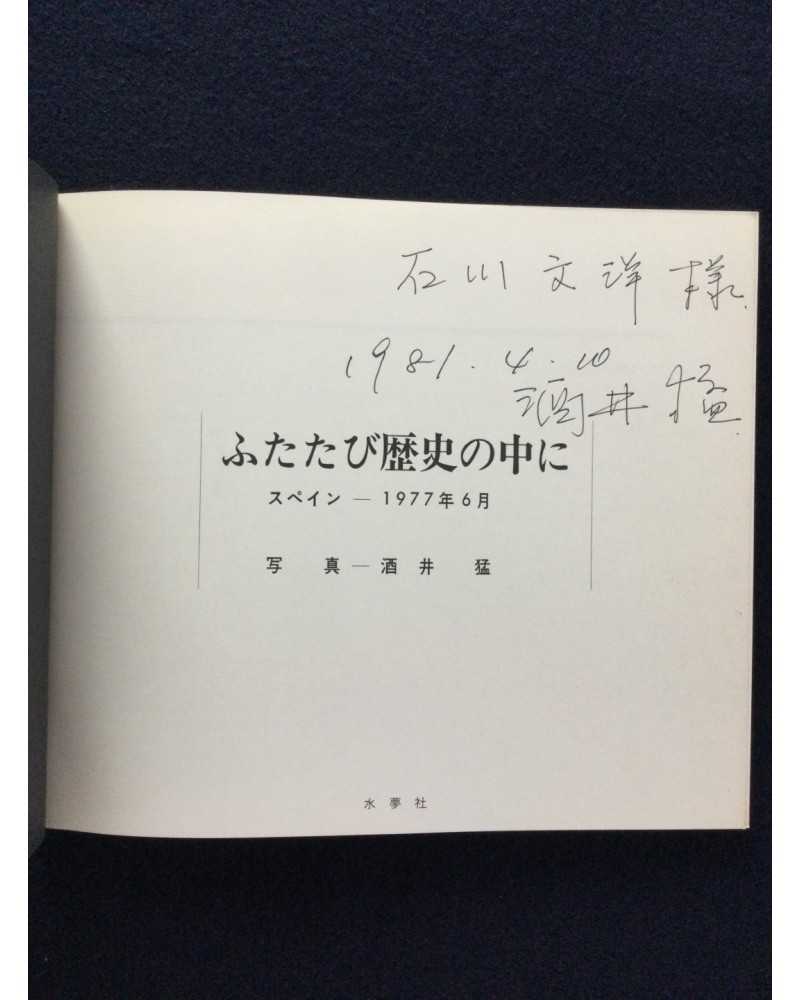 石川文洋様
1981.4.10
酒井猛
ふたたび歴史の中に
スペイン — 1977年6月
写 真 — 酒 井 猛
水夢社